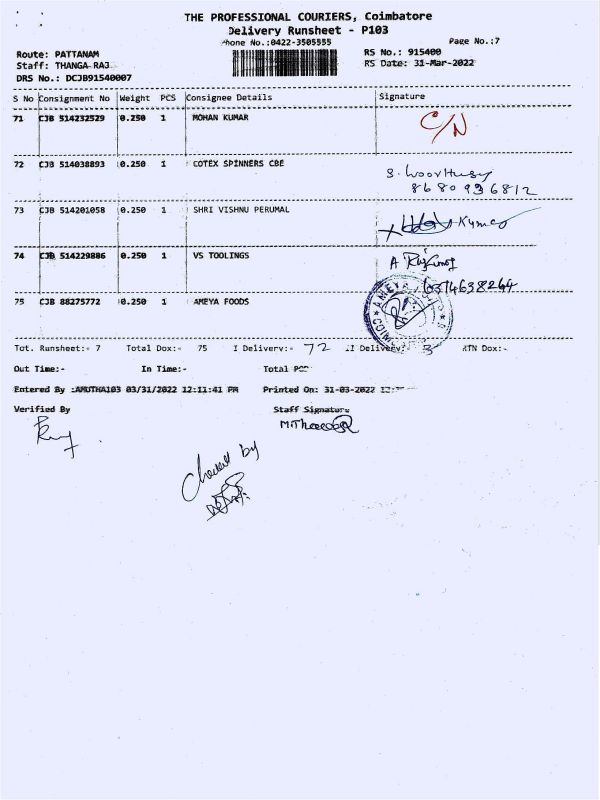 THE PROFESSIONAL COURIERS, Coimbatore
Delivery Runsheet - P103
Phone No.:0422-3505555
Page No.:7
Route: PATTANAM
RS No.: 915400
Staff: THANGA RAJ
RS Date: 31-Mar-2022
DRS No.: DCJB91540007
S No Consignment No Weight PCS Consignee Details Signature
71 CJB 514232529 0.250 1 MOHAN KUMAR C/N
72 CJB 514038893 0.250 1 COTEX SPINNERS CBE
8680936812
73 CJB 514201058 0.250 1 SHRI VISHNU PERUMAL Kumar
74 CJB 514229886 0.250 1 VS TOOLINGS
75 CJB 88275772 0.250 1 AMEYA FOODS
Tot. Runsheet:- 7 Total Dox:- 75 I Delivery:- 72 II Delivery: 3 RTN Dox:-
Out Time:- In Time:- Total
Entered By :AMUTHA103 03/31/2022 12:11:41 PM Printed On: 31-03-2022
Verified By Staff Signature
by